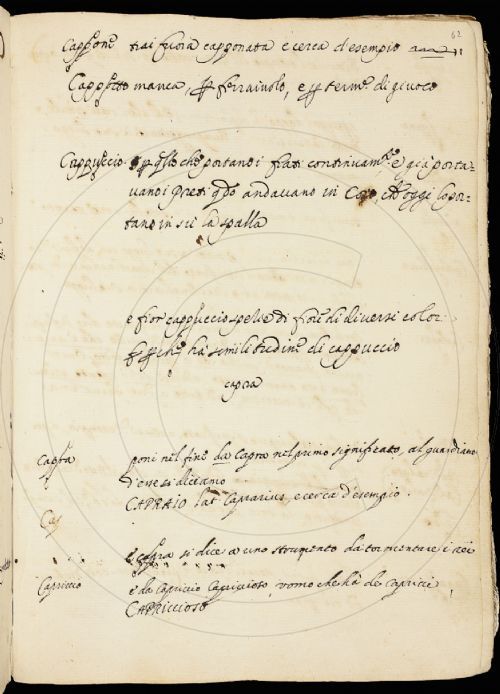 62
Capponẽ trai fuora capponata e cerca d'esempio
Cappotto manca, p ferraiuolo, e p termẽ di giuoco
Cappuccio. p qllo che portano i frati continuamte. e già porta-
vano i preti qdo andavano in Coro, ch'oggi lo por-
tano in sù la spalla
e fior cappuccio spetie di fiorẽ di diversi color
che ha similitudinẽ di cappuccio
capra
capra poni nel finẽ da Capra nel primo significato, al guardiano
d'esse si diciamo
CAPRAIO lat. Caprarius, e cerca d'esempio.
Cap
e capra si dice a uno strumento da tormentare i rei
Capriccio e da capriccio Capriccioso, uomo che hà de Capricci
CAPRICCIOSO